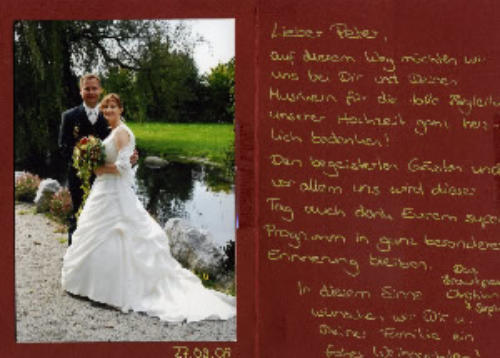 Lieber Peter,
auf diesem Weg möchten wir
uns bei Dir und Deinen
Musikern für die tolle Begleit
unserer Hochzeit ganz herz-
lich bedanken!
Den begeisterten Gästen und
vor allem uns wird dieser
Tag auch dank Eurem super
Programm in ganz besonderer
Erinnerung bleiben.
Das
Brautpaar
In diesem Sinne
wünschen wir Dir u.
Deiner Familie ein